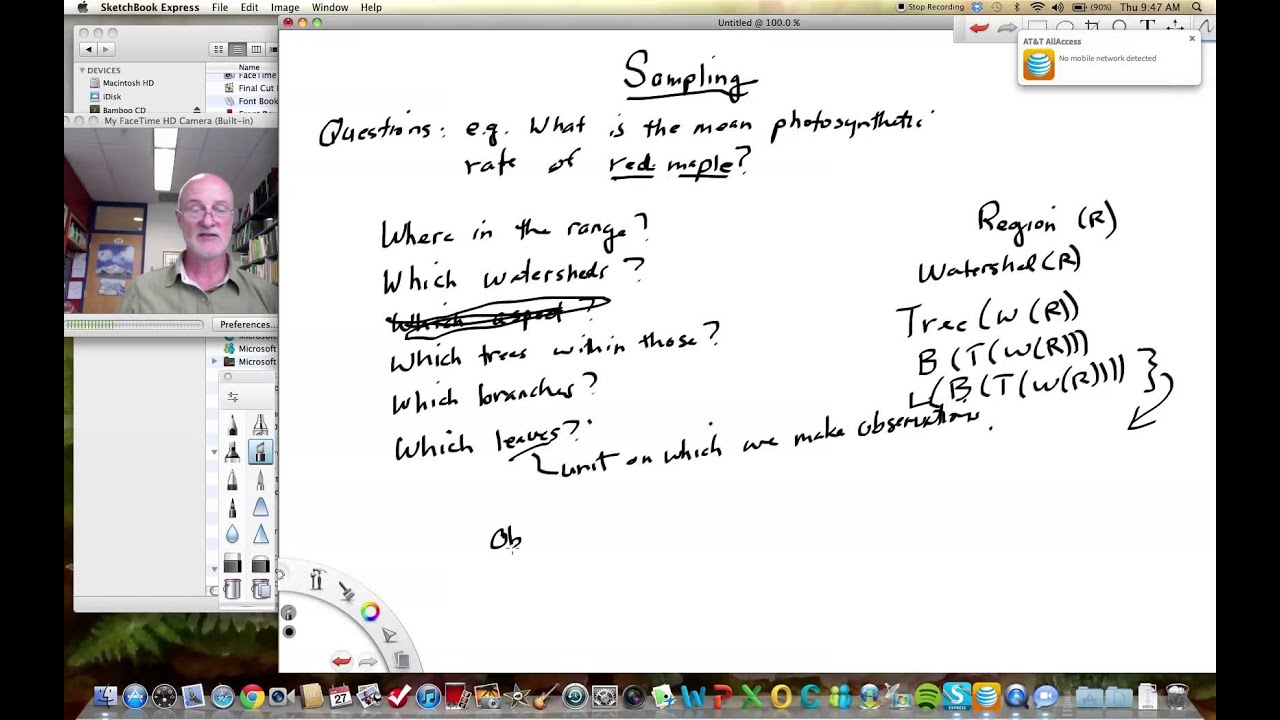 SketchBook Express File Edit Image Window Help
Stop Recording (90%) Thu 9:47 AM
Untitled @ 100.0 %
AT&T AllAccess
No mobile network detected
Name
DEVICES
Macintosh HD
iDisk
Bamboo CD
FaceTime
Final Cut
Font Book
My FaceTime HD Camera (Built-in)
Preferences...
Microsoft
Microsoft
Sampling
Questions: e.g. What is the mean photosynthetic
rate of red maple?
Where in the range?
Which watersheds?
Which aspect?
Which trees within those?
Which branches?
Which leaves?
unit on which we make observations.
Region (R)
Watershed (R)
Tree (W(R))
B (T(W(R)))
L (B (T(W(R))))
Ob